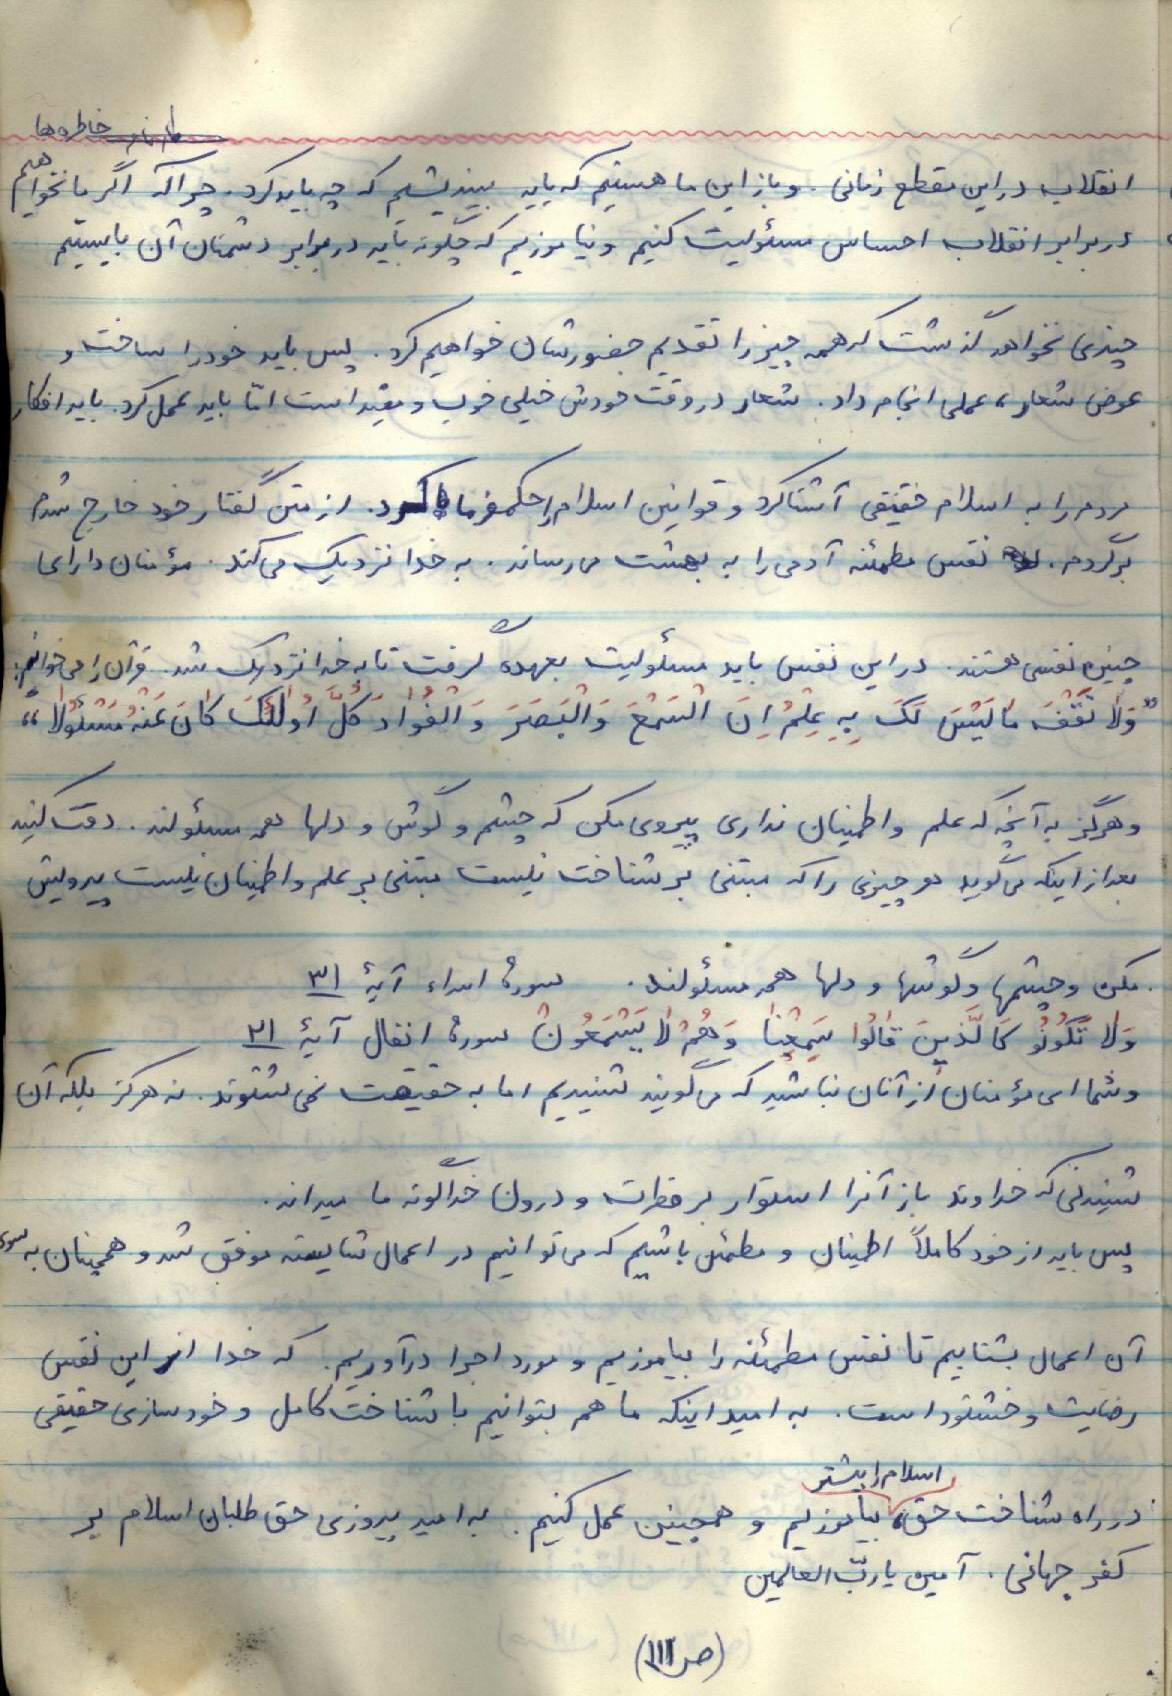 خاطره‌ها
انقلاب در این مقطع زمانی. و باز این ما هستیم که باید بیندیشیم که چه باید کرد. چرا که اگر ما نخواهیم
در برابر انقلاب احساس مسئولیت کنیم و نیاموزیم که چگونه باید در برابر دشمنان آن بایستیم
چیزی نخواهد گذشت که همه چیز را تقدیم حضورشان خواهیم کرد. پس باید خود را ساخت و
عوض شعار، عملی انجام داد. شعار در وقت خودش خیلی خوب و مفید است امّا باید عمل کرد. باید افکار
مردم را به اسلام حقیقی آشنا کرد و قوانین اسلام را حکمفرما کرد. از متن گفتار خود خارج شدم
برگردم. نفس مطمئنه آدمی را به بهشت می‌رساند. به خدا نزدیک می‌کند. مؤمنان دارای
چنین نفسی هستند. در این نفس باید مسئولیت بعهده گرفت تا به خدا نزدیک شد. قرآن را می‌خوانیم:
"وَلاٰ تَقْفَ مٰا لَیْسَ لَکَ بِهِ عِلِمْ اِنَ الْسَمْعَ وَالْبَصَرَ وَ الْفُوٰادَ کُلُّ اُوٰلٰئِکَ کٰانَ عَنْهُ مَسْئُولاٰ"
و هرگز به آنچه که علم و اطمینان نداری پیروی مکن که چشم و گوش و دلها همه مسئولند. دقت کنید
بعد از اینکه می‌گوید هر چیزی را که مبتنی بر شناخت نیست مبتنی بر علم و اطمینان نیست پیرویش
مکن و چشمها و گوشها و دلها همه مسئولند. سورهٔ اسراء آیهٔ ۳۱
وَلاٰ تَکُونُو کَالَّذینَ قٰالُوا سَمِعْنٰا وَ هُمْ لاٰ یَسْتَمَعُونْ سورهٔ انفال آیهٔ ۲۱
و شما ای مؤمنان از آنان نباشید که می‌گویند شنیدیم اما به حقیقت نمی‌شنوند. نه هرگز بلکه آن
شنیدنی که خداوند باز آنرا استوار بر فطرت و درون خداگونه ما میداند.
پس باید از خود کاملاً اطمینان و مطمئن باشیم که می‌توانیم در اعمال شایسته موفق شد و همچنان به سوی
آن اعمال بشتابیم تا نفس مطمئنه را بیاموزیم و مورد اجرا درآوریم. که خدا از این نفس
رضایت و خشنود است. به امید اینکه ما هم بتوانیم با شناخت کامل و خودسازی حقیقی
اسلام را بیشتر
در راه شناخت حق، بیاموزیم و همچنین عمل کنیم. به امید پیروزی حق طلبان اسلام بر
کفر جهانی. آمین یا ربّ العالمین
(ص ۱۱۲)